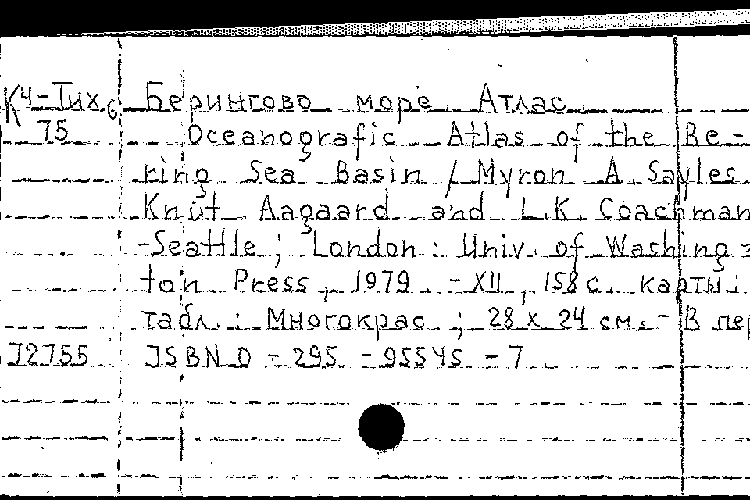 К4-Тих6 Берингово море Атлас
75 Oceanografic Atlas of the Be-
ring Sea Basin / Myron A Sayles
Knut Aagaard and L.K. Coachman
-Seattle ; London : Univ. of Washing=
ton Press, 1979. - XII, 158 с. карты :
табл. : Многокрас ; 28 x 24 см. - В пер
J2755 JSBN 0 - 295 - 95545 - 7